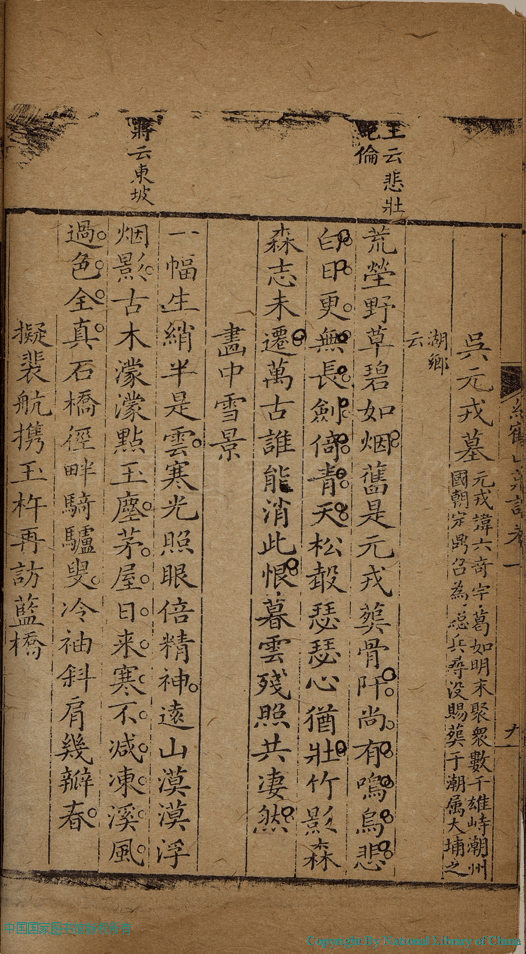 王云悲壯
絶倫
蔣云東坡
吳元戎墓
元戎諱六奇字葛如明末聚衆數千雄峙潮州
國朝定鼎召為總兵尋没賜葬于潮属大埔之
湖鄉
云
荒塋野草碧如烟舊是元戎葬骨阡尚有嗚烏悲
白印更無長劍倚青天松殸瑟瑟心猶壯竹影森
森志未遷萬古誰能消此恨暮雲殘照共凄然
畵中雪景
一幅生綃半是雲寒光照眼倍精神遠山漠漠浮
烟影古木濛濛點玉塵茅屋日来寒不减凍溪風
過色全真石橋徑畔騎驢叟冷袖斜肩幾瓣春
擬裴航携玉杵再訪藍橋
Copyright By National Library of China